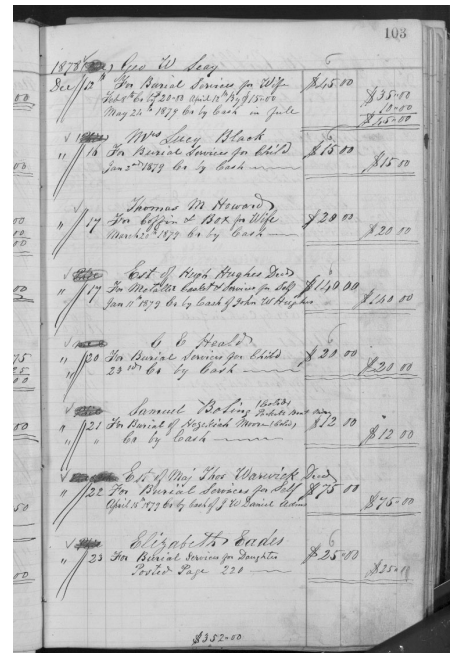 103
1878 Geo W Seay
Dec 12th For Burial Services for Wife $45.00
Feb 8th Cr by 20.00 April 12th By $15.00 $35.00
10.00
May 24th 1879 Cr by Cash in full $45.00
Mrs Lucy Black
" 16 For Burial Services for Child $15 00
Jan 2nd 1879 Cr by Cash $15 00
Thomas M Howard
" 17 For Coffin & Box for Wife $20 00
March 1879 Cr by Cash $20 00
Est of Hugh Hughes Decd
" 17 For Metallic Casket & Services for Self $140 00
Jan 11th 1879 Cr by Cash of John W Hughes $140 00
C E Heald
" 20 For Burial Services for Child $20 00
23rd Cr by Cash $20 00
Samuel Boling
" 21 For Burial of Hezekiah Moore (Cold) $12 00
" " Cr by Cash $12 00
Est of Maj Thos Warwick Decd
" 22 For Burial Services for Self $75 00
April 15th 1879 Cr by Cash of J W Daniel Admr $75.00
Elizabeth Eades
" 23 For Burial Services for Daughter $25.00
Posted Page 220 $25.00
$352.00